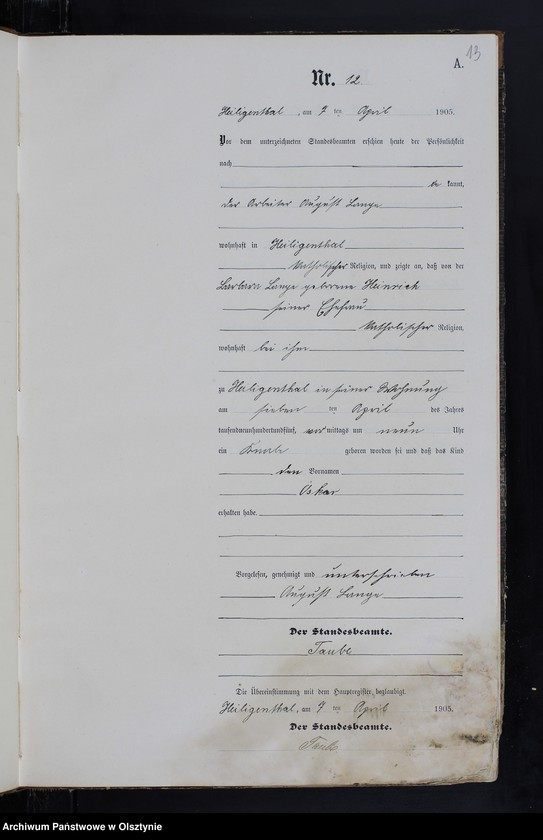 13
A.
Nr. 12
Heiligenthal, am 7 ten April 1905.
Vor dem unterzeichneten Standesbeamten erschien heute der Persönlichkeit
nach
be kannt,
der Arbeiter August Lange
wohnhaft in Heiligenthal
katholischer Religion, und zeigte an, daß von der
Barbara Lange geborene Heinrich
seiner Ehefrau
katholischer Religion,
wohnhaft bei ihm
zu Heiligenthal in seiner Wohnung
am sieben ten April des Jahres
tausendneunhundertundfünf, vor mittags um neun Uhr
ein Knabe geboren worden sei und daß das Kind
den Vornamen
Oskar
erhalten habe.
Vorgelesen, genehmigt und unterschrieben
August Lange
Der Standesbeamte.
Taube
Die Übereinstimmung mit dem Hauptregister beglaubigt.
Heiligenthal, am 7 ten April 1905.
Der Standesbeamte.
Taube
Archiwum Państwowe w Olsztynie